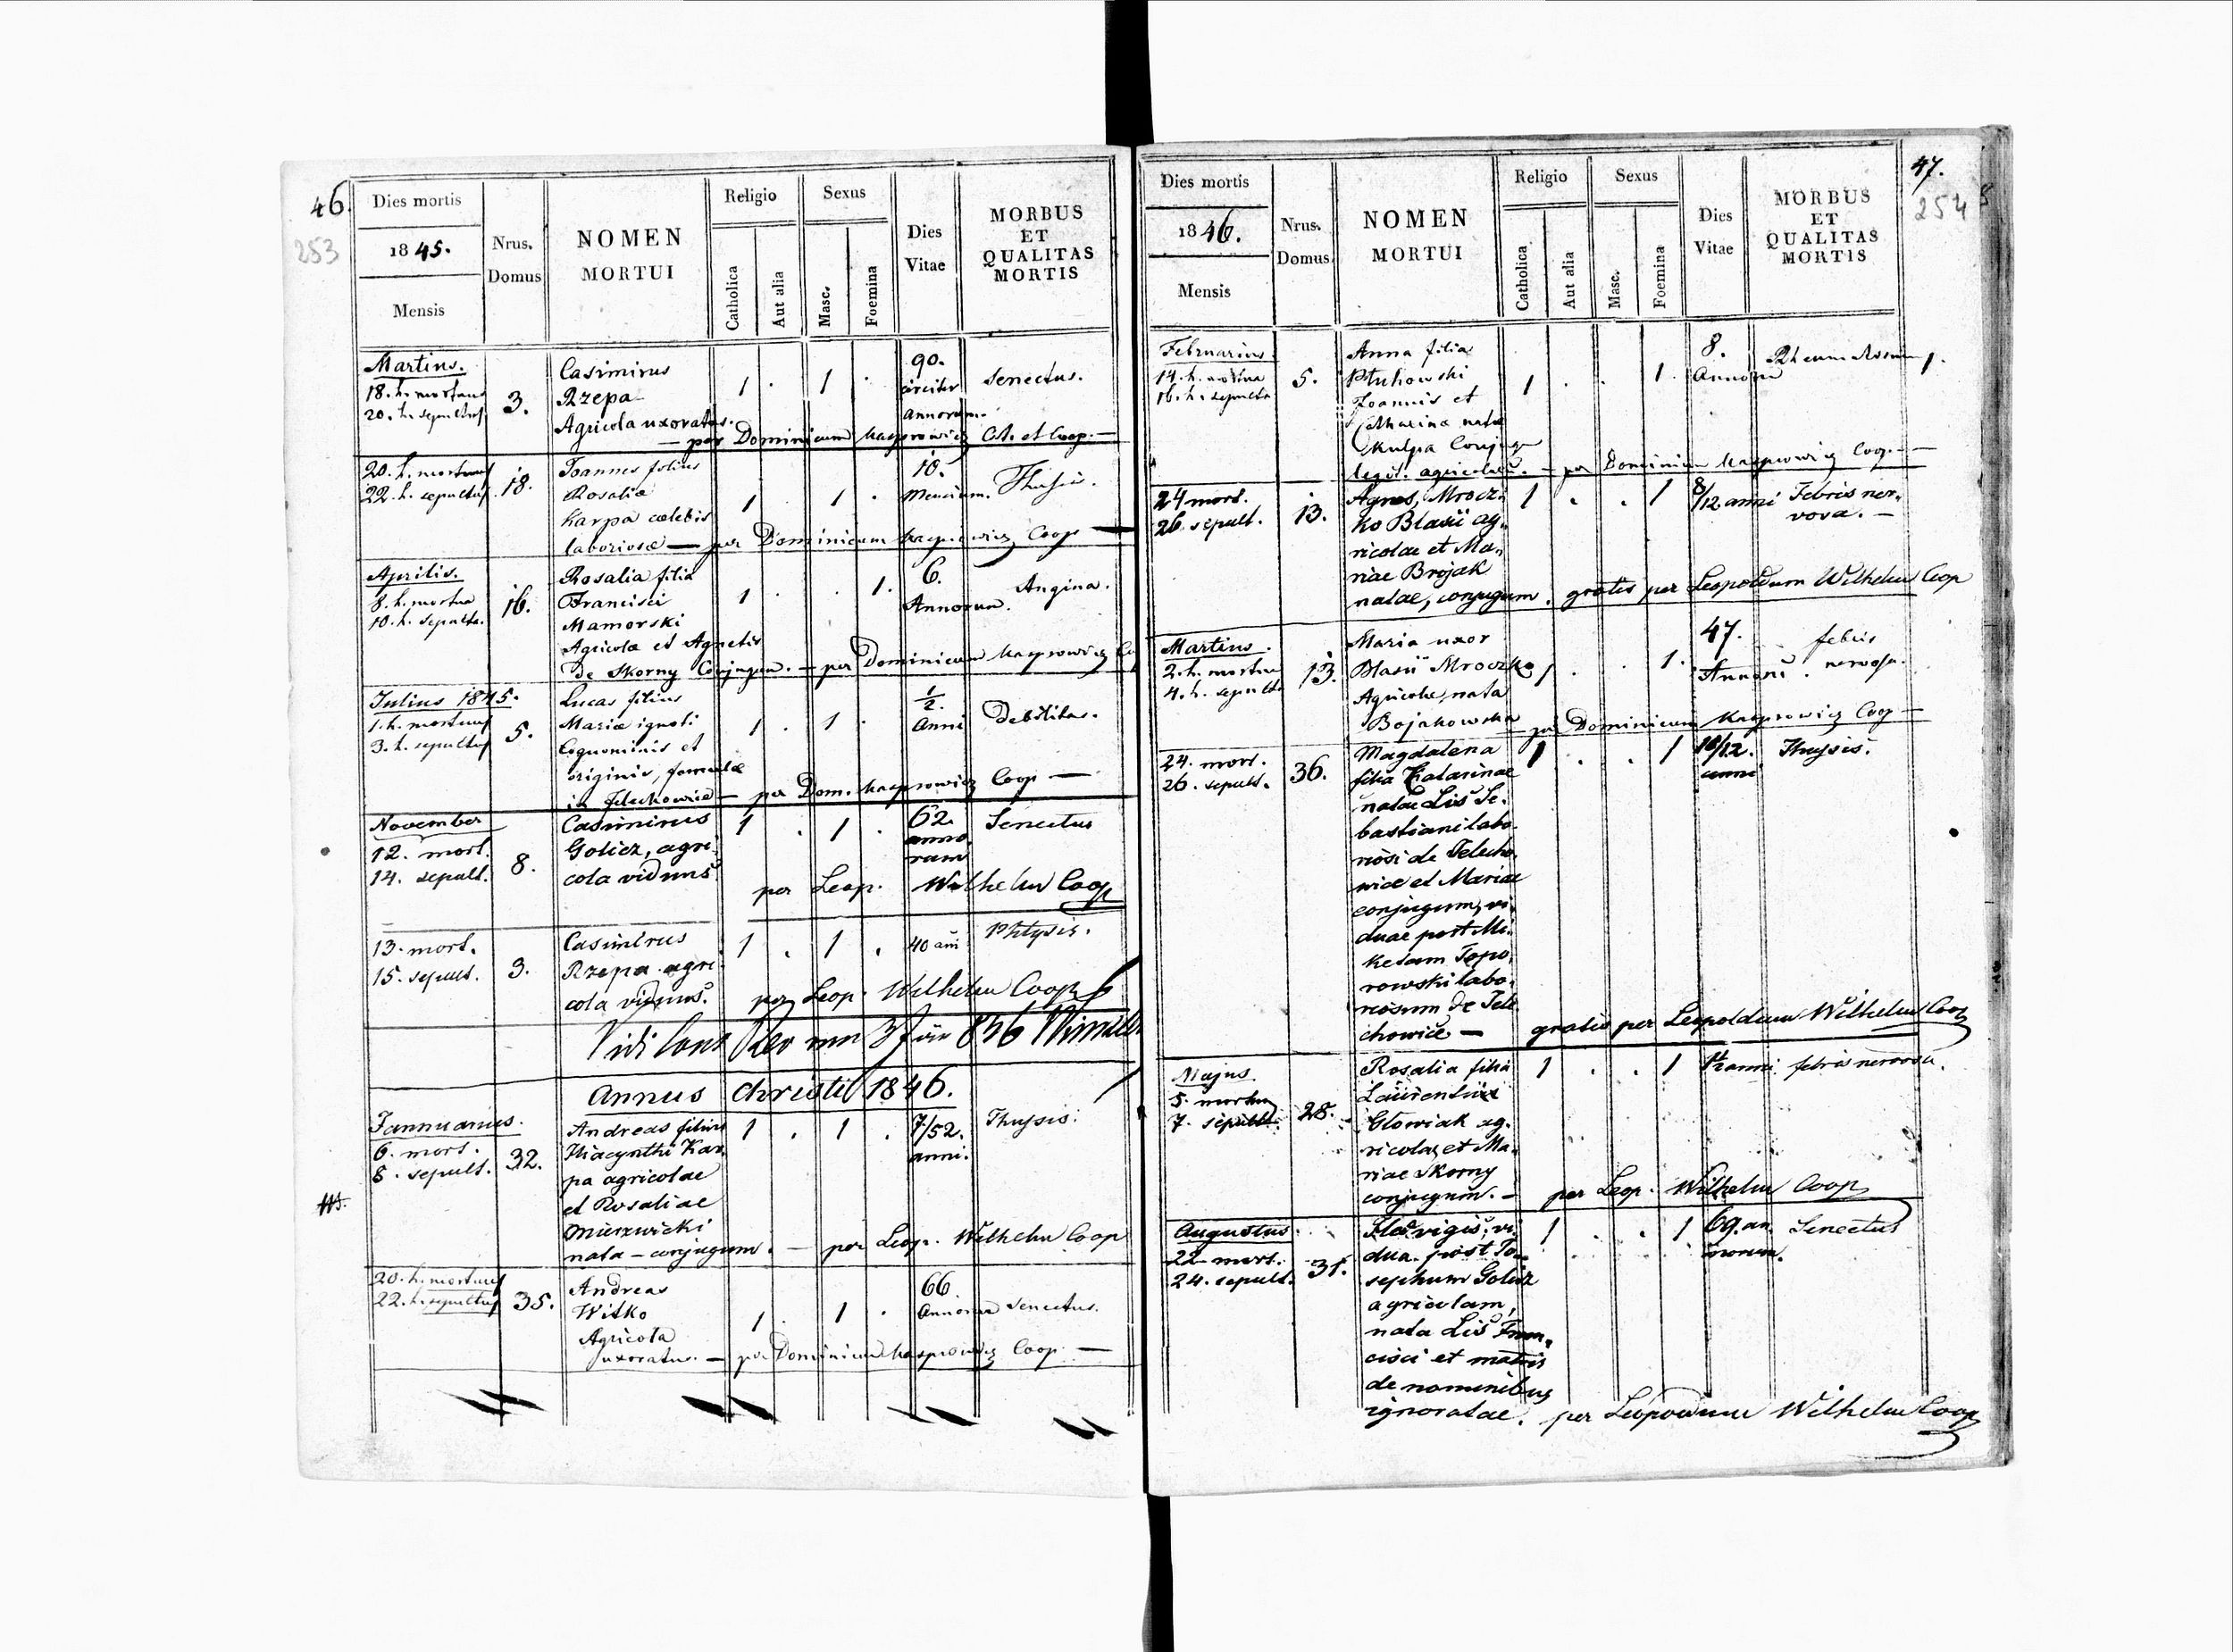 46.
253
Dies mortis
1845.
Mensis
Nrus.
Domus
NOMEN
MORTUI
Religio
Catholica
Aut alia
Sexus
Masc.
Foemina
Dies
Vitae
MORBUS
ET
QUALITAS
MORTIS
Martius.
18. h. mortuus
20. h. sepultus
3.
Casimirus
Rzepa
Agricola uxoratus.
1 . 1 .
90.
circiter
annorum.
Senectus.
— per Dominicum Kasprowicz Coop. —
20. h. mortuus
22. h. sepultus
18.
Joannes filius
Rosaliæ
Karpa cælebis
laboriosæ — per Dominicum Kasprowicz Coop —
1 . 1 .
10.
Mensium.
Thysis.
Aprilis.
8. h. mortua
10. h. sepulta.
16.
Rosalia filia
Francisci
Mamorski
Agricolæ et Agnetis
De Skorny Conjugum. — per Dominicum Kasprowicz
1 . . 1.
6.
Annorum.
Angina.
Julius 1845.
1. h. mortuus
3. h. sepultus
5.
Lucas filius
Mariæ ignoti
Cognominis et
originis, famulæ
in Felechowice — per Dom. Kasprowicz Coop —
1 . 1 .
1/2.
Anni
Debilitas.
November
12. mort.
14. sepult.
8.
Casimirus
Golicz, agri
cola viduus
1 . 1 .
62.
anno
rum
Senectus
per Leop. Wilhelm Coop
13. mort.
15. sepult.
3.
Casimirus
Rzepa agri
cola viduus.
1 . 1 .
40 ani
Phtysis.
per Leop. Wilhelm Coop
Vidi
Annus Christi 1846.
Jannuarius.
6. mort.
8. sepult.
32.
Andreas filius
Hiacynthi Kar,
pa agricolae
et Rosaliae
nata – conjugum. — per Leop. Wilhelm Coop
1 . 1 .
7/52.
anni.
Thysis.
20. h. mortuus
22. h. sepultus
35.
Andreas
Witko
Agricola
uxoratus. — per Dominicum Kasprowicz Coop —
1 . 1 .
66
Annorum
Senectus.
47.
254
Dies mortis
1846.
Mensis
Nrus.
Domus
NOMEN
MORTUI
Religio
Catholica
Aut alia
Sexus
Masc.
Foemina
Dies
Vitae
MORBUS
ET
QUALITAS
MORTIS
Februarius
14. h. mortua
16. h. sepulta
5.
Anna filia
Ptuhowski
Joannis et
Catharinæ natæ
Kulpa Conjugu
legit. agricolar. — per Dominicum Kasprowicz Coop. —
1 . . 1.
8.
Annorum
24 mort.
26. sepult.
13.
Agnes, Mrocz,
ko Blasii ag,
ricolae et Ma,
riae Brojak
natae, conjugum. gratis per Leopoldum Wilhelm Coop
1 . . 1
8/12 anni
Febris ner,
vosa. —
Martius.
2. h. mortua
4. h. sepulta
13.
Maria uxor
Blasii Mroczko
Agricolæ, nata
Bojakowska — per Dominicum Kasprowicz Coop —
1 . . 1.
47.
Annorum
febris
nervosa.
24. mort.
26. sepult.
36.
Magdalena
filia Catarinae
natae Lis Se,
bastiani labo,
riosi de Felecho,
wice et Mariae
conjugum, vi,
duae post Mi,
Topo,
rowski labo,
riosum de Fele
chowice — gratis per Leopoldum Wilhelm Coop
1 . . 1
10/12.
anni
Thysis.
Majus
5. mortua
7. sepult.
28.
Rosalia filia
Laurentii
Glowiak ag,
ricolae et Ma,
riae Skorny
conjugum. — per Leop. Wilhelm Coop
1 . . 1
anni
febris nervosa.
Augustus
22 mort.
24. sepult.
31.
Hedvigis, vi,
dua post Jo,
sephum Golicz
agricolam,
nata Lis Fran,
cisci et matris
de nominibus
ignoratae. per Leopoldum Wilhelm Coop
1 . . 1
69. an
norum.
Senectus